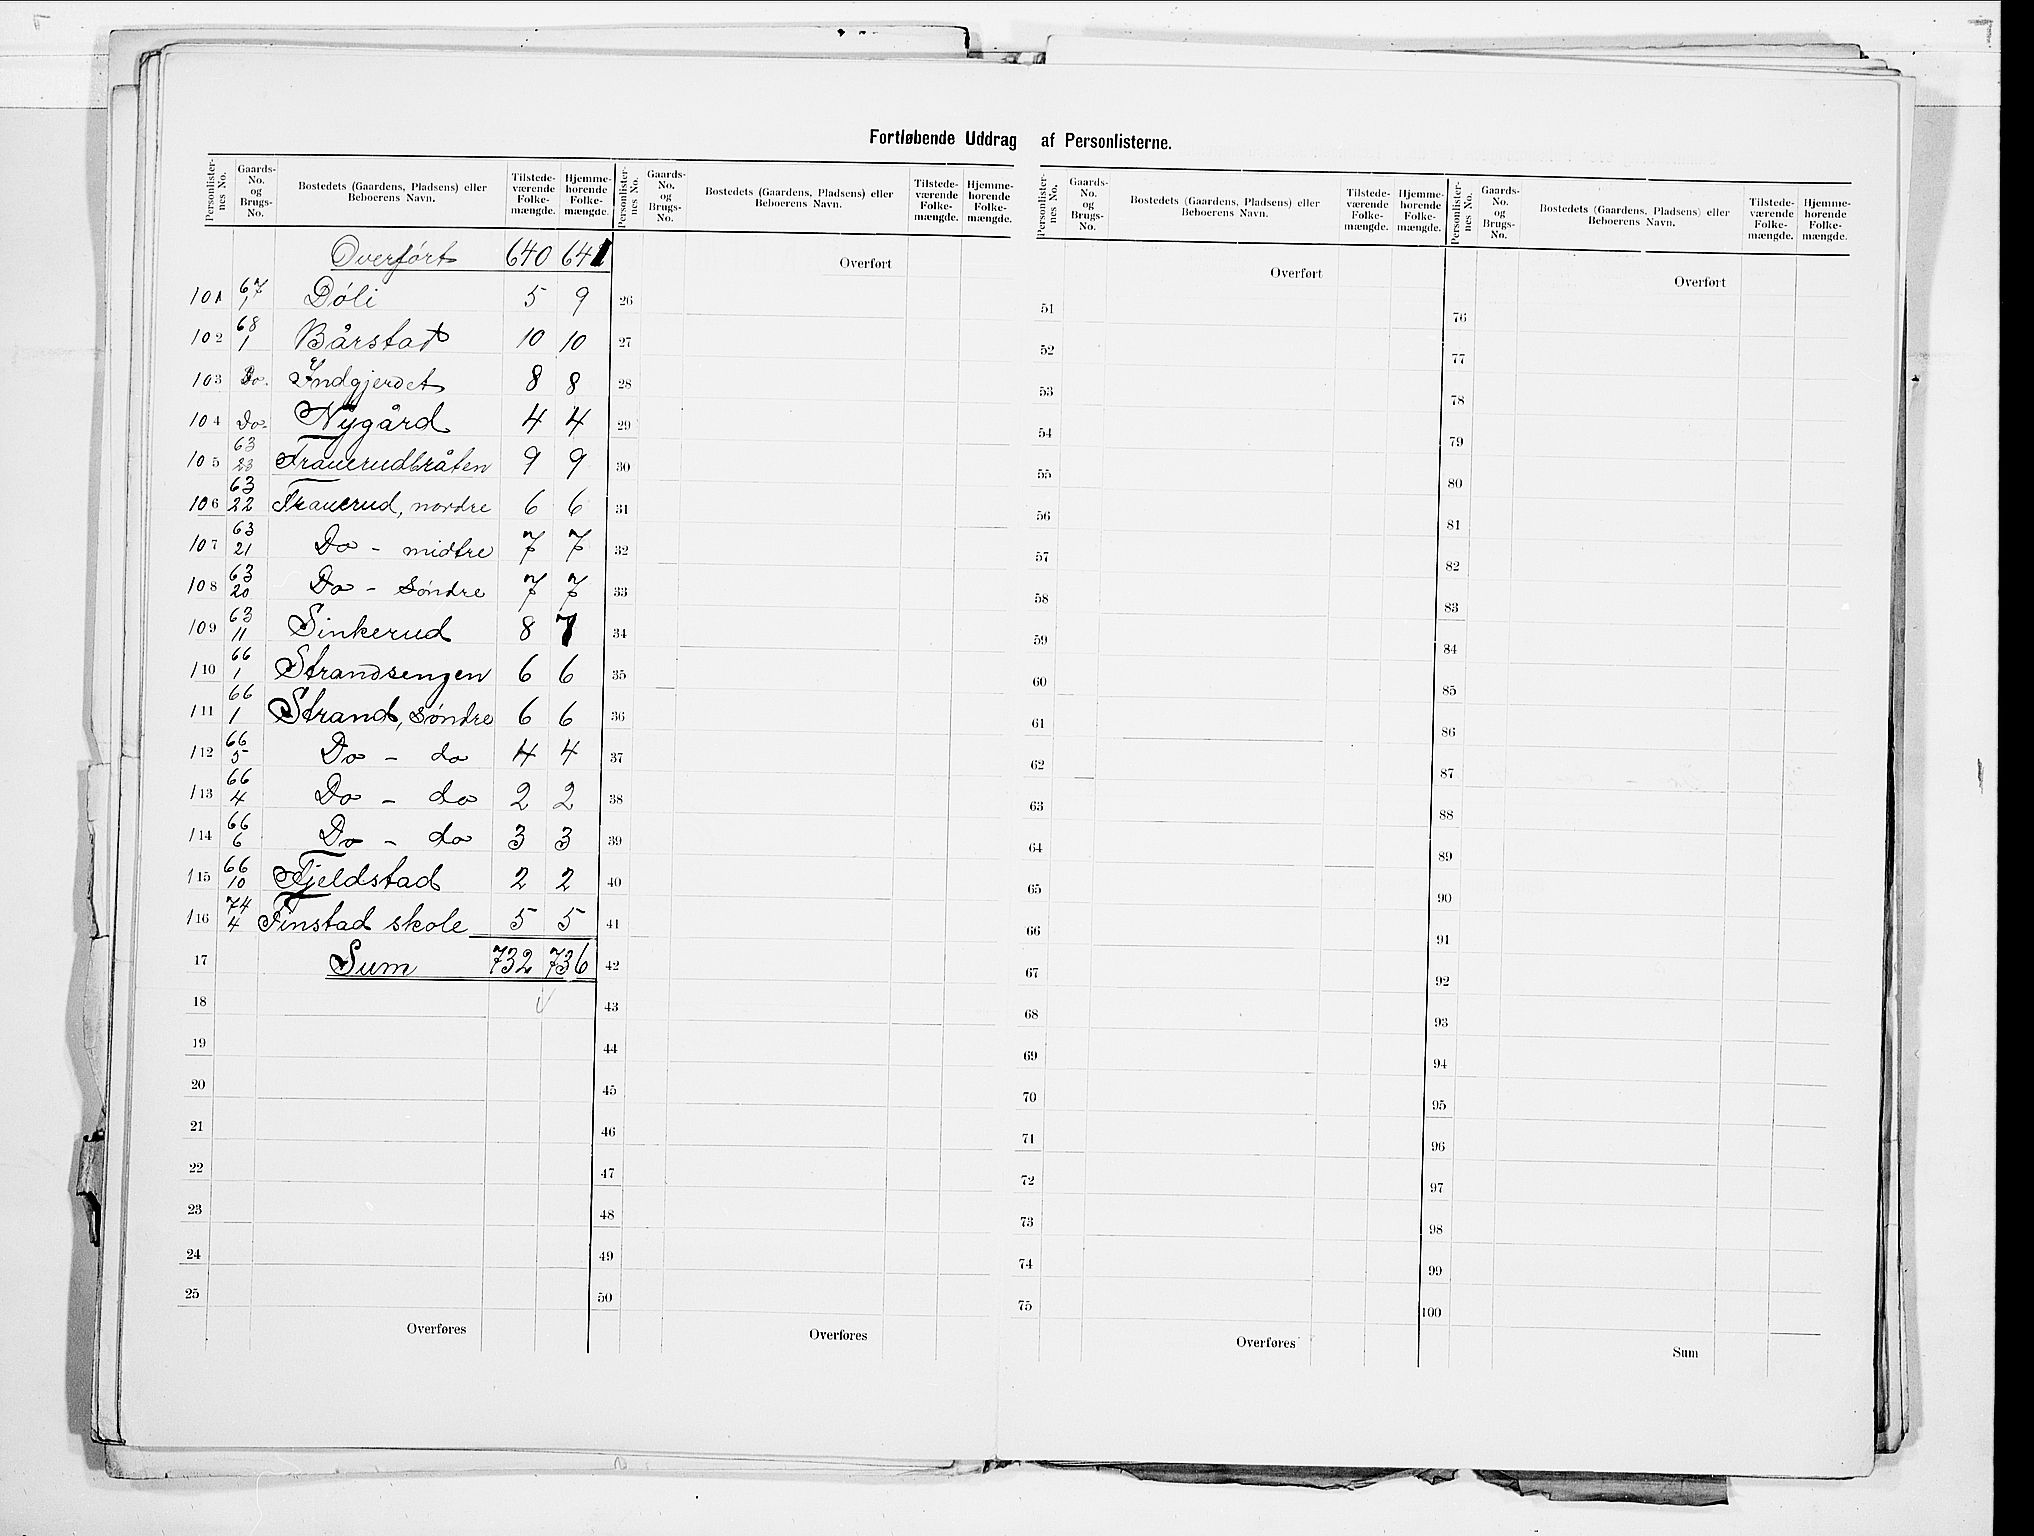 Fortløbende Uddrag af Personlisterne.
Personlister-nes No. Gaards-No. og Brugs-No. Bostedets (Gaardens, Pladsens) eller Beboerens Navn. Tilstede-værende Folke-mængde. Hjemme-hörende Folke-mængde.
Overført 640 641
101 67/1 Döli 5 9
102 68/1 Bårstad 10 10
103 Do. Indgjerdet 8 8
104 Do. Nygård 4 4
105 63/23 Trauerudbråten 9 9
106 63/22 Trauerud, nordre 6 6
107 63/21 Do - midtre 7 7
108 63/20 Do - søndre 7 7
109 63/11 Sinkerud 8 7
110 66/1 Strandsengen 6 6
111 66/1 Strand, søndre 6 6
112 66/5 Do - do 4 4
113 66/4 Do - do 2 2
114 66/6 Do - do 3 3
115 66/10 Fjeldstad 2 2
116 74/4 Finstad skole 5 5
17 Sum 732 736
18
19
20
21
22
23
24
25
Overføres
Personlister-nes No. Gaards-No. og Brugs-No. Bostedets (Gaardens, Pladsens) eller Beboerens Navn. Tilstede-værende Folke-mængde. Hjemme-hörende Folke-mængde.
Overført
26
27
28
29
30
31
32
33
34
35
36
37
38
39
40
41
42
43
44
45
46
47
48
49
50
Overføres
Personlister-nes No. Gaards-No. og Brugs-No. Bostedets (Gaardens, Pladsens) eller Beboerens Navn. Tilstede-værende Folke-mængde. Hjemme-hörende Folke-mængde.
Overført
51
52
53
54
55
56
57
58
59
60
61
62
63
64
65
66
67
68
69
70
71
72
73
74
75
Overføres
Personlister-nes No. Gaards-No. og Brugs-No. Bostedets (Gaardens, Pladsens) eller Beboerens Navn. Tilstede-værende Folke-mængde. Hjemme-hörende Folke-mængde.
Overført
76
77
78
79
80
81
82
83
84
85
86
87
88
89
90
91
92
93
94
95
96
97
98
99
100
Sum